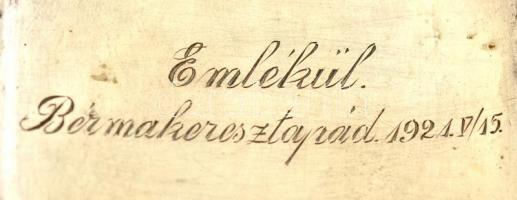 Emlékül.
Bérmakeresztapád. 1921. V/15.